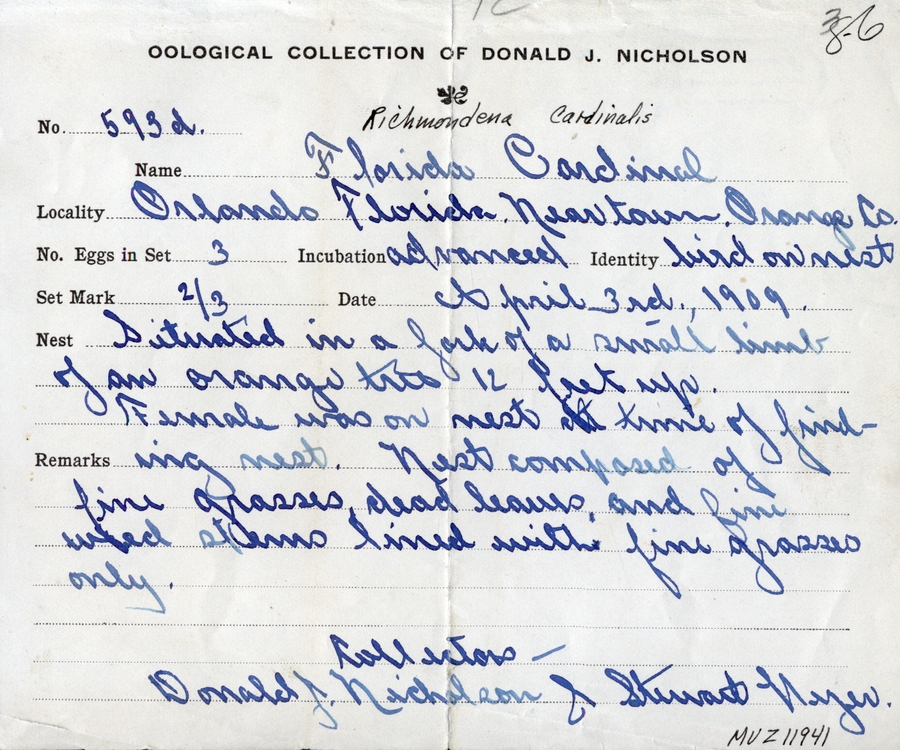 38-6
OOLOGICAL COLLECTION OF DONALD J. NICHOLSON
Richmondena Cardinalis
No. 593d.
Name Florida Cardinal
Locality Orlando Florida. Near town. Orange Co.
No. Eggs in Set 3 Incubation advanced Identity bird on nest
Set Mark 2/3 Date April 3rd., 1909.
Nest Situated in a fork of a small limb
of an orange tree 12 feet up.
Female was on nest at time of find-
Remarks ing nest. Nest composed of
fine grasses, dead leaves, and fine
weed stems lined with fine grasses
only.
Collectors —
Donald J. Nicholson & Stewart
MVZ 11941